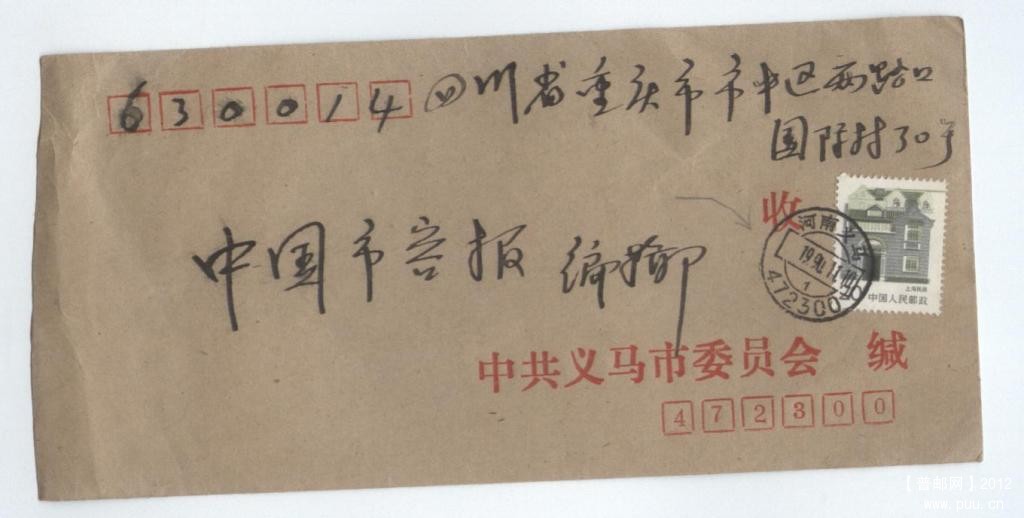 630014 四川省重庆市市中区两路口
国际村30号
收
河南义马
1990.11.10
1
472300
上海民居
中国人民邮政
中国市容报 编辑部
中共义马市委员会 缄
472300
【普邮网】2012
www.puu.cn